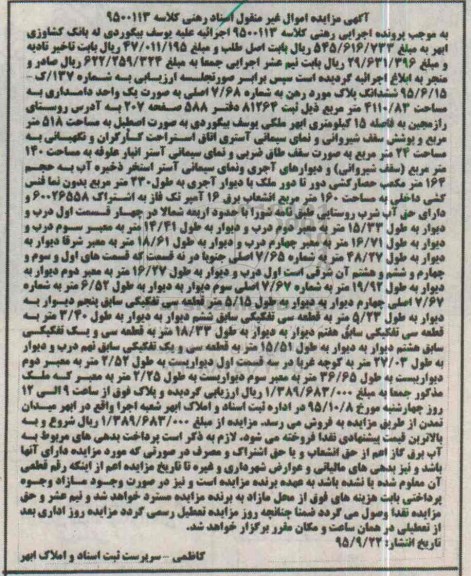 آگهی مزایده اموال غیر منقول اسناد رهنی کلاسه ۹۵۰۰۱۱۳
به موجب پرونده اجرایی رهنی کلاسه ۹۵۰۰۱۱۳ اجرائیه علیه یوسف بیگوردی له بانک کشاورزی
ابهر به مبلغ ۵۴۵/۶۱۶/۷۳۳ ریال بابت اصل طلب و مبلغ ۴۷/۰۱۱/۱۹۵ ریال بابت تاخیر تادیه
و مبلغ ۲۹/۶۳۱/۳۹۶ ریال بابت نیم عشر اجرایی جمعا به مبلغ ۶۲۲/۲۵۹/۳۲۴ ریال صادر و
منجر به ابلاغ اجرائیه گردیده است سپس برابر صورتجلسه ارزیابی به شماره ۱۳۷/ک -
۹۵/۶/۱۵ ششدانگ پلاک مورد رهن به شماره ۷/۶۸ اصلی به صورت یک واحد دامداری به
مساحت ۴۱۱۰/۸۳ متر مربع ذیل ثبت ۸۱۲۶۴ دفتر ۵۸۸ صفحه ۲۰۷ به آدرس روستای
رازمجین به فاصله ۱۵ کیلومتری ابهر ملکی یوسف بیگوردی به صورت اصطبل به مساحت ۵۱۸ متر
مربع و پوشش سقف شیروانی و نمای سیمانی آستری اتاق استراحت کارگران و نگهبانی به
مساحت ۲۴ متر مربع به صورت سقف طاق ضربی و نمای سیمانی آستر انبار علوفه به مساحت ۱۴۰
متر مربع (سقف شیروانی) و دیوارهای آجری ونمای سیمانی آستر استخر ذخیره آب به حجم
۱۶۴ متر مکعب حصارکشی دور تا دور ملک با دیوار آجری به طول ۲۳۰ متر مربع بدون نما فنس
کشی داخلی به مساحت ۱۶۰ متر مربع انشعاب برق ۱۶ آمپر تک فاز به اشتراک ۶۰۰۲۶۵۵۸ و
دارای حق آب شرب روستایی طبق نامه شورا با حدود اربعه شمالا در چهار قسمت اول درب و
دیوار به طول ۱۵/۳۳ متر به معبر دوم درب و دیوار به طول ۱۴/۴۱ متر به معبر سوم درب و
دیوار به طول ۱۶/۷۱ متر به معبر چهارم درب و دیوار به طول ۱۸/۶۱ متر به معبر شرقا دیوار به
دیوار به طول ۴۸/۲۷ متر به شماره ۷/۶۵ اصلی جنوبا در نه قسمت که قسمت های اول و سوم و
چهارم و ششم و هشتم آن شرقی است اول درب و دیوار به طول ۱۶/۲۷ متر به معبر دوم دیوار به
دیوار به طول ۱۹/۹۳ متر به شماره ۷/۶۷ اصلی سوم دیوار به دیوار به طول ۶/۵۲ متر به شماره
۷/۶۷ اصلی چهارم دیوار به دیوار به طول ۵/۱۵ متر قطعه سی تفکیکی سابق پنجم دیوار به
دیوار به طول ۵/۲۳ متر به قطعه سی تفکیکی سابق ششم دیوار به دیوار به طول ۳/۴۰ متر به
قطعه سی تفکیکی سابق هفتم دیوار به دیوار به طول ۱۸/۳۳ متر به قطعه سی و یک تفکیکی
سابق هشتم دیوار به دیوار به طول ۱۵/۵۱ متر به قطعه سی و یک تفکیکی سابق نهم درب و دیوار
به طول ۲۷/۰۳ متر به کوچه غربا در سه قسمت اول دیواریست به طول ۲/۵۲ متر به معبر دوم
دیواریست به طول ۳۶/۶۵ متر به معبر سوم دیواریست به طول ۲/۲۵ متر به معبر که ملک
مذکور جمعا به مبلغ ۱/۳۸۹/۶۸۳/۰۰۰ ریال ارزیابی گردیده و پلاک فوق از ساعت ۹ الی ۱۲
روز چهارشنبه مورخ ۹۵/۱۰/۸ در اداره ثبت اسناد و املاک ابهر شعبه اجرا واقع در ابهر میدان
تمدن از طریق مزایده به فروش می رسد. مزایده از مبلغ ۱/۳۸۹/۶۸۳/۰۰۰ ریال شروع و به
بالاترین قیمت پیشنهادی نقدا فروخته می شود. لازم به ذکر است پرداخت بدهی های مربوط به
آب برق گاز اعم از حق انشعاب و یا حق اشتراک و مصرف در صورتی که مورد مزایده دارای آنها
باشد و نیز بدهی های مالیاتی و عوارض شهرداری و غیره تا تاریخ مزایده اعم از اینکه رقم قطعی
آن معلوم شده یا نشده باشد به عهده برنده مزایده است و نیز در صورت وجود مازاد وجوه
پرداختی بابت هزینه های فوق از محل مازاد به برنده مزایده مسترد خواهد شد و نیم عشر و حق
مزایده نقدا وصول می گردد ضمنا چنانچه روز مزایده تعطیل رسمی گردد مزایده روز اداری بعد
از تعطیلی در همان ساعت و مکان مقرر برگزار خواهد شد.
تاریخ انتشار: ۹۵/۹/۲۲
کاظمی - سرپرست ثبت اسناد و املاک ابهر